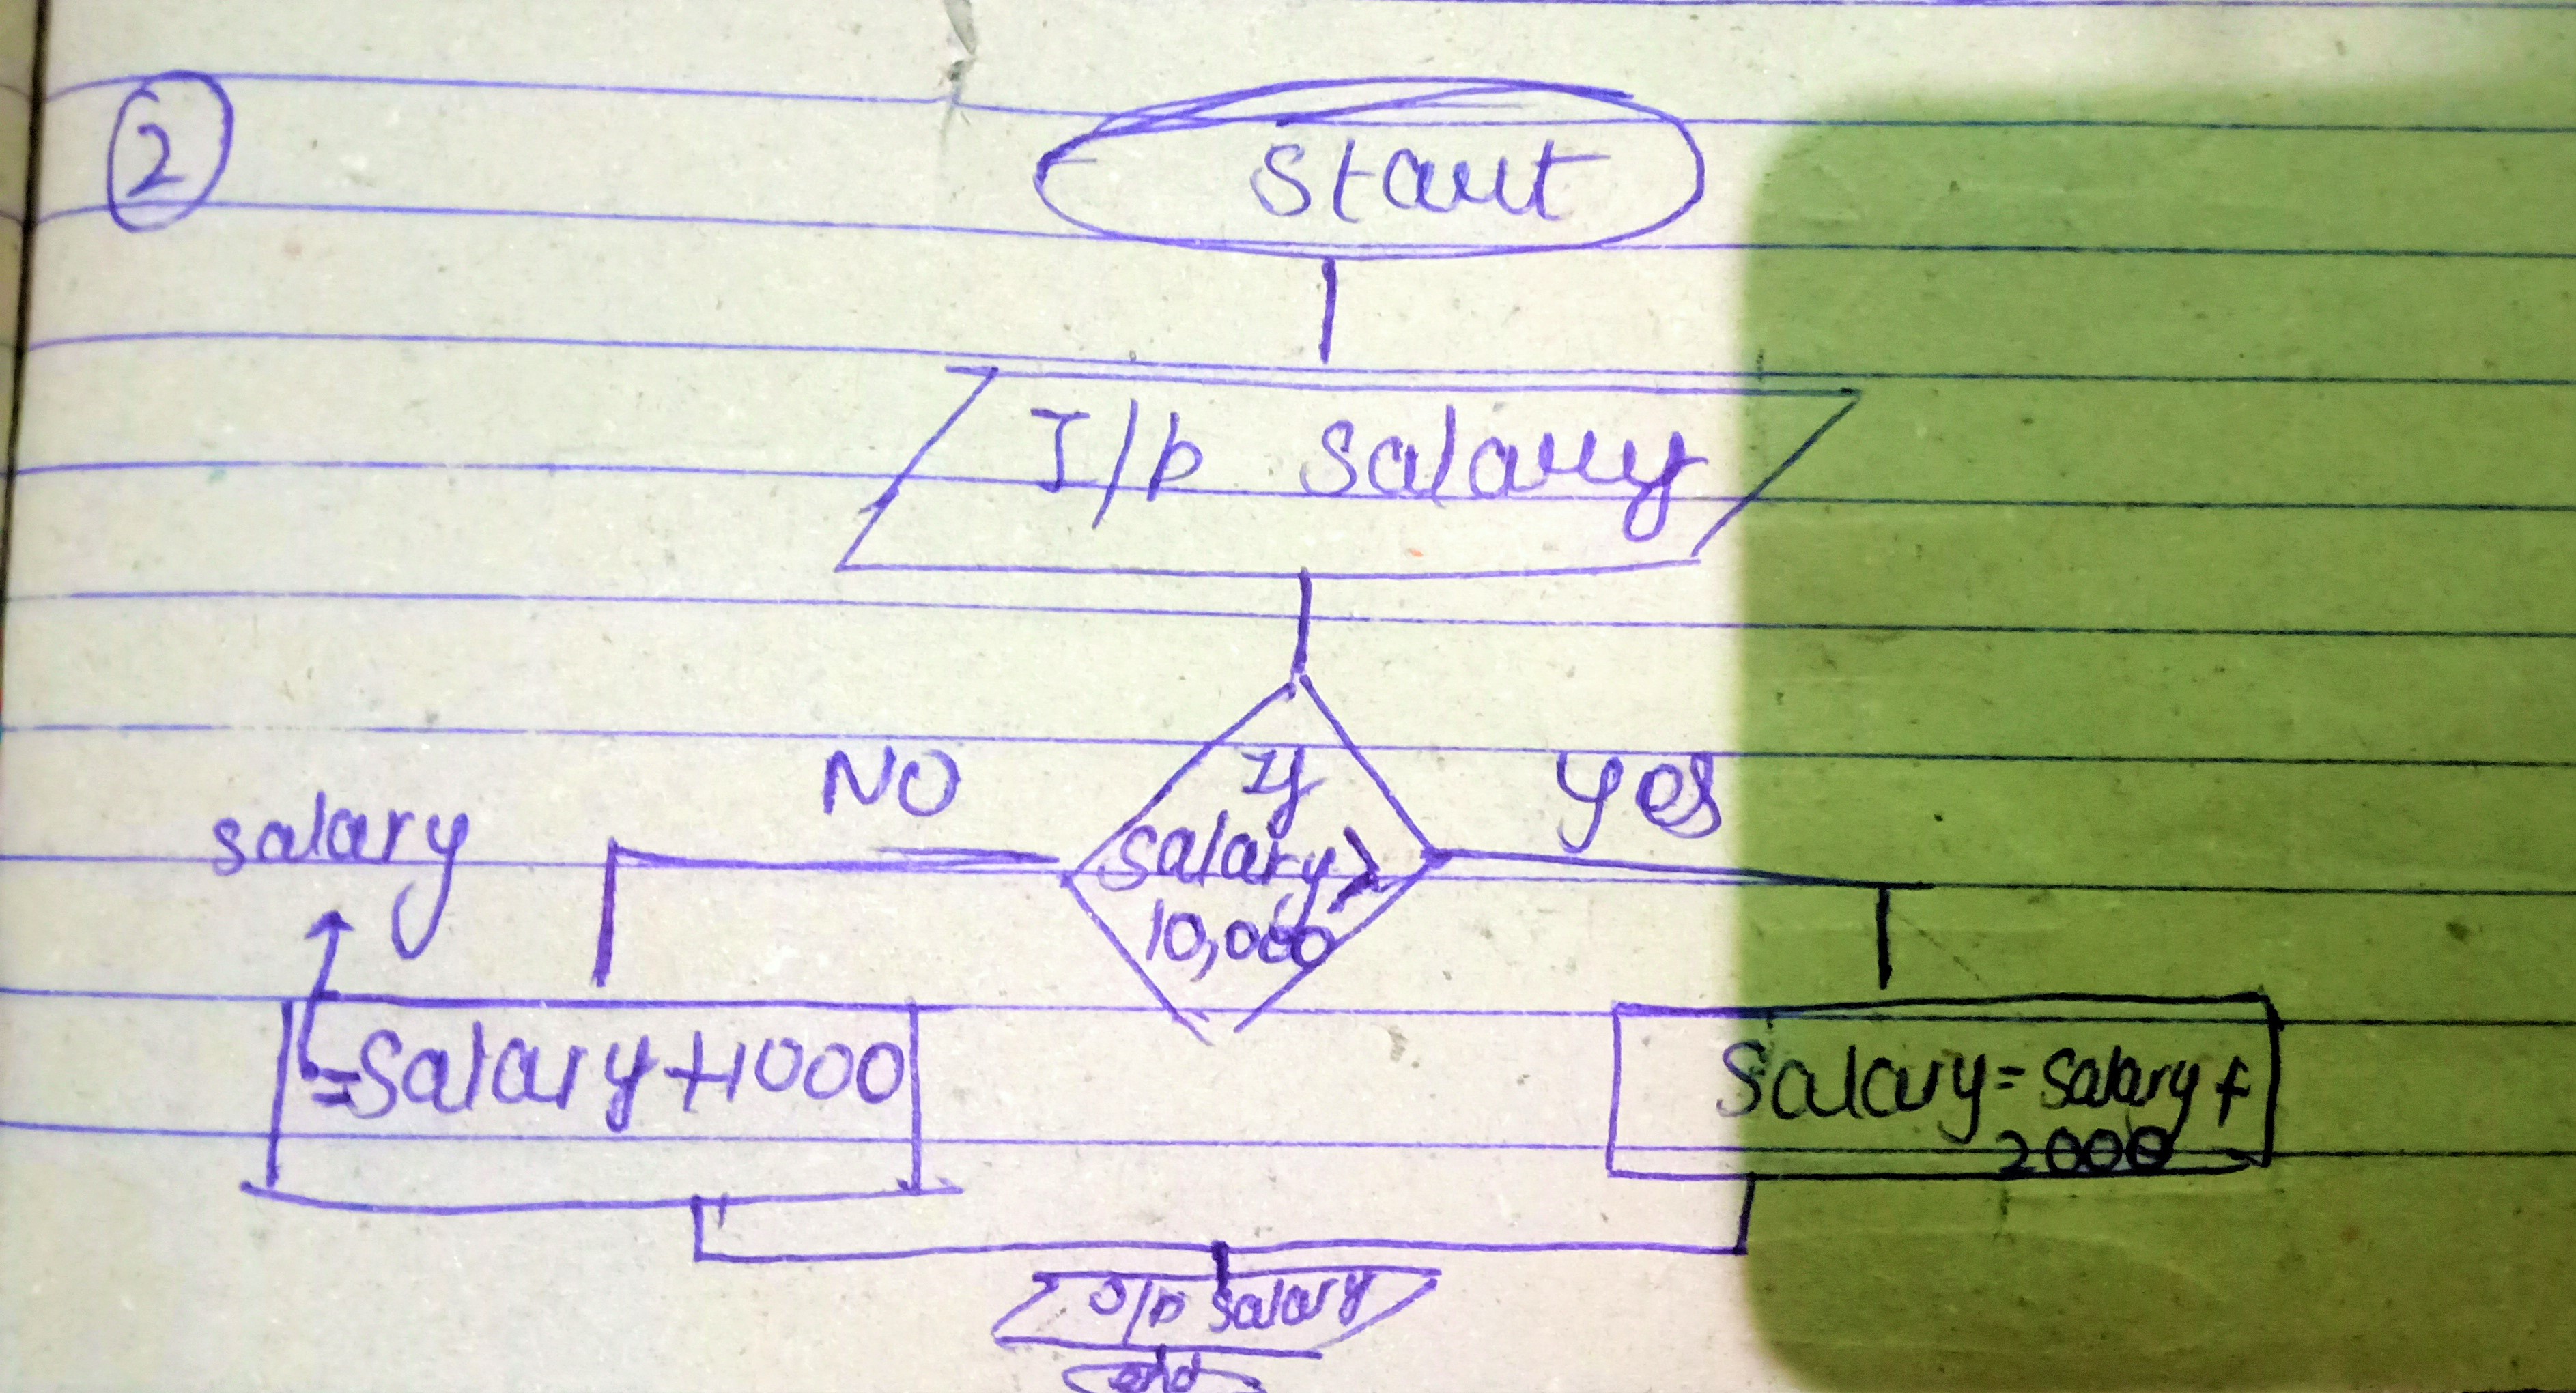 2
Start
I/p salary
NO
if
salary>
10,000
yes
salary
=salary+1000
salary=salary+
2000
O/p salary
end